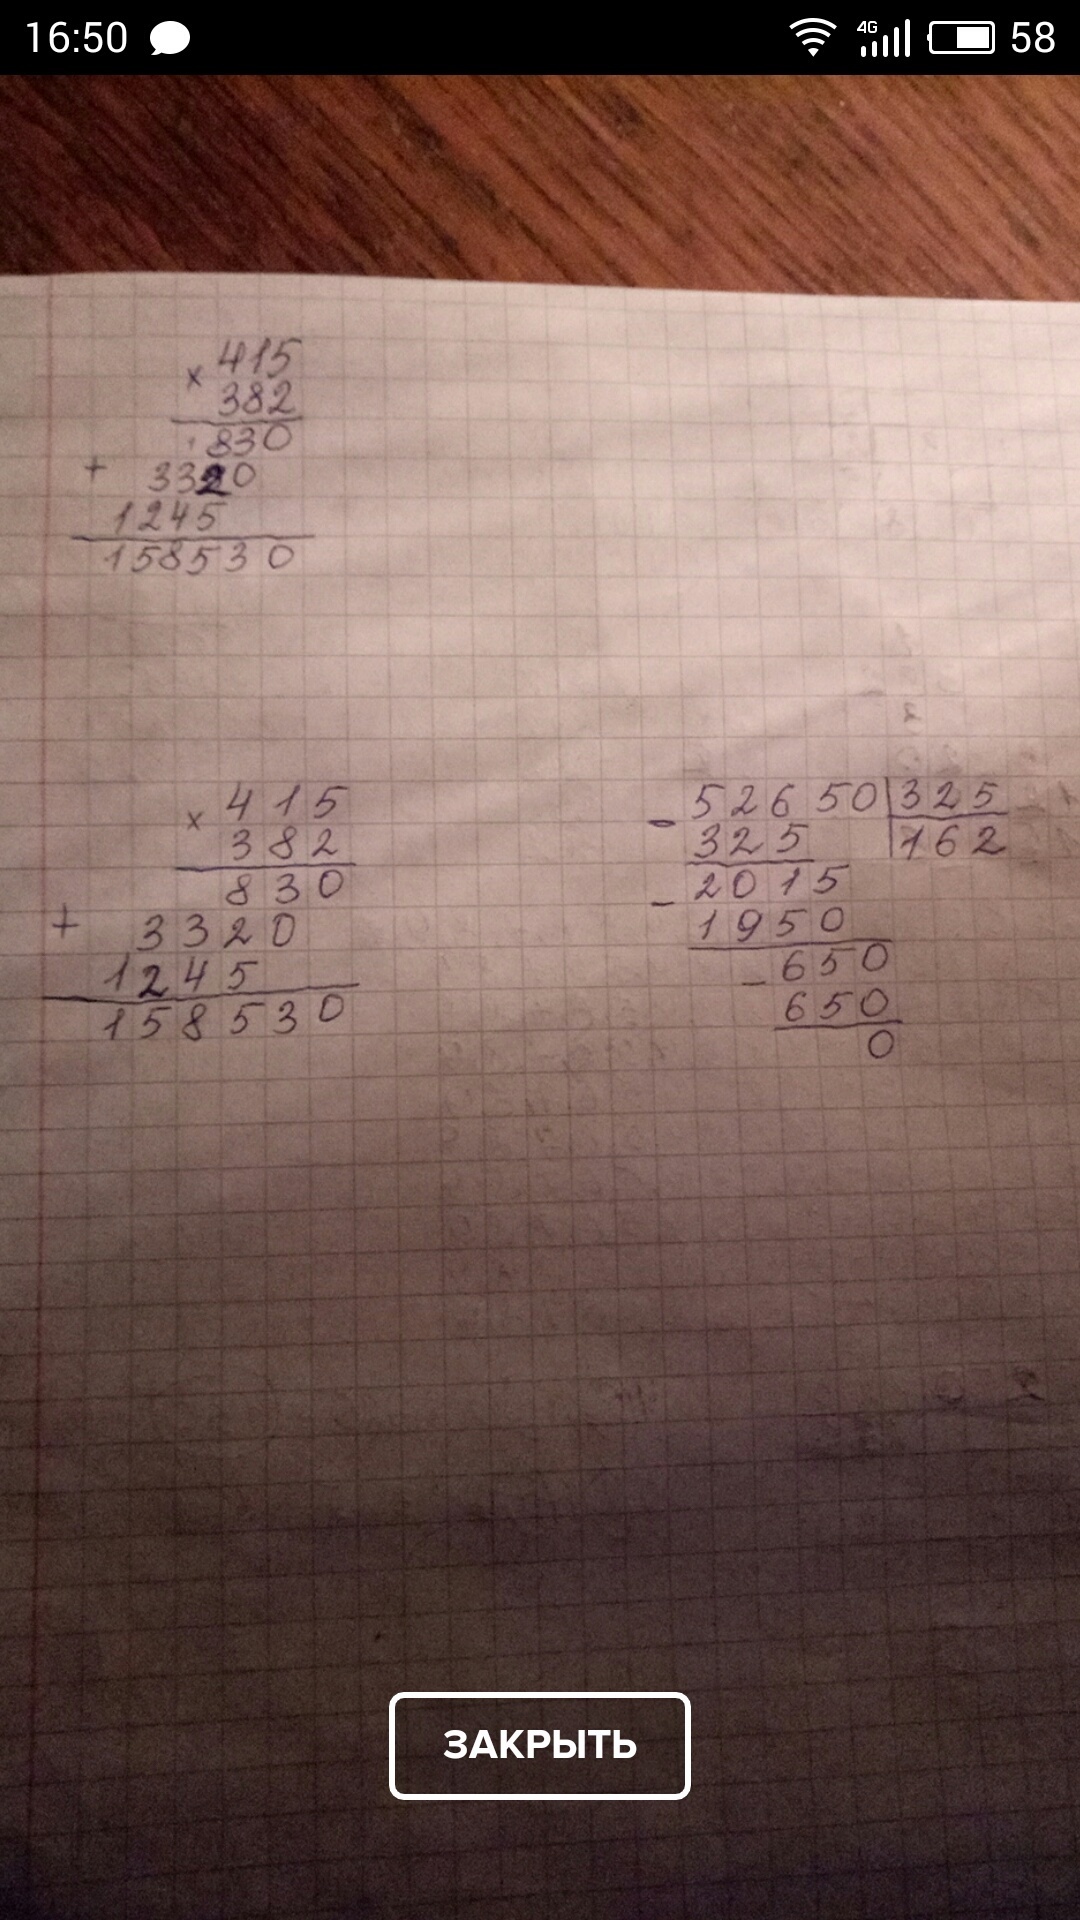 16:50 4G 58
× 415
382
830
+ 3320
1245
158530
× 415
382
830
+ 3320
1245
158530
- 52650 325
325 162
- 2015
1950
- 650
650
0
ЗАКРЫТЬ